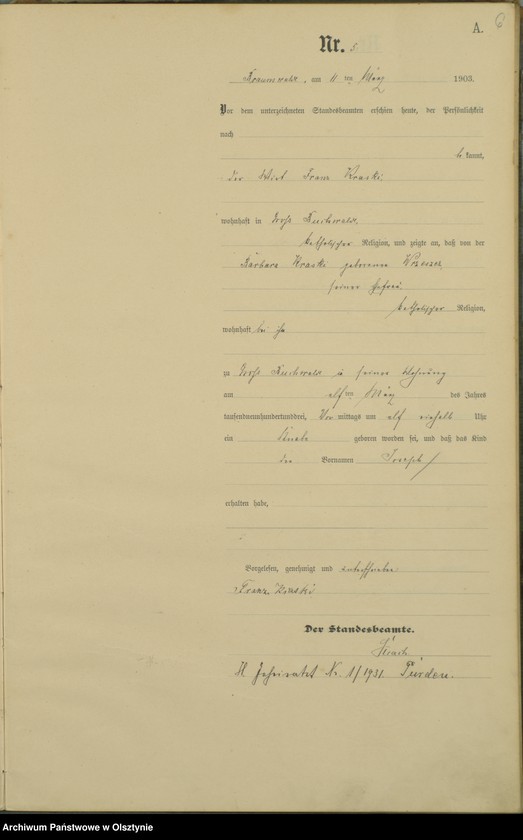 A.
Nr. 5
am 11 ten März 1903.
Vor dem unterzeichneten Standesbeamten erschien heute, der Persönlichkeit
nach
bekannt,
der Wirt Franz
wohnhaft in Groß Buchwalde,
katholischer Religion, und zeigte an, daß von der
Barbara geborenen
seiner Ehefrau
katholischer Religion,
wohnhaft bei ihm
zu Groß Buchwalde in seiner Wohnung
am elf ten März des Jahres
tausendneunhundertunddrei, Vor mittags um elf Uhr
ein Knabe geboren worden sei, und daß das Kind
den Vornamen Joseph
erhalten habe.
Vorgelesen, genehmigt und unterschrieben
Franz
Der Standesbeamte.
Nr. 1/1931. Purden.
Archiwum Państwowe w Olsztynie